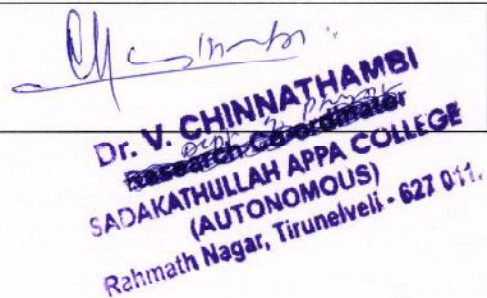 Dr. V. CHINNATHAMBI
Dept. of Physics
Research Co-ordinator
SADAKATHULLAH APPA COLLEGE
(AUTONOMOUS)
Rahmath Nagar, Tirunelveli - 627 011.